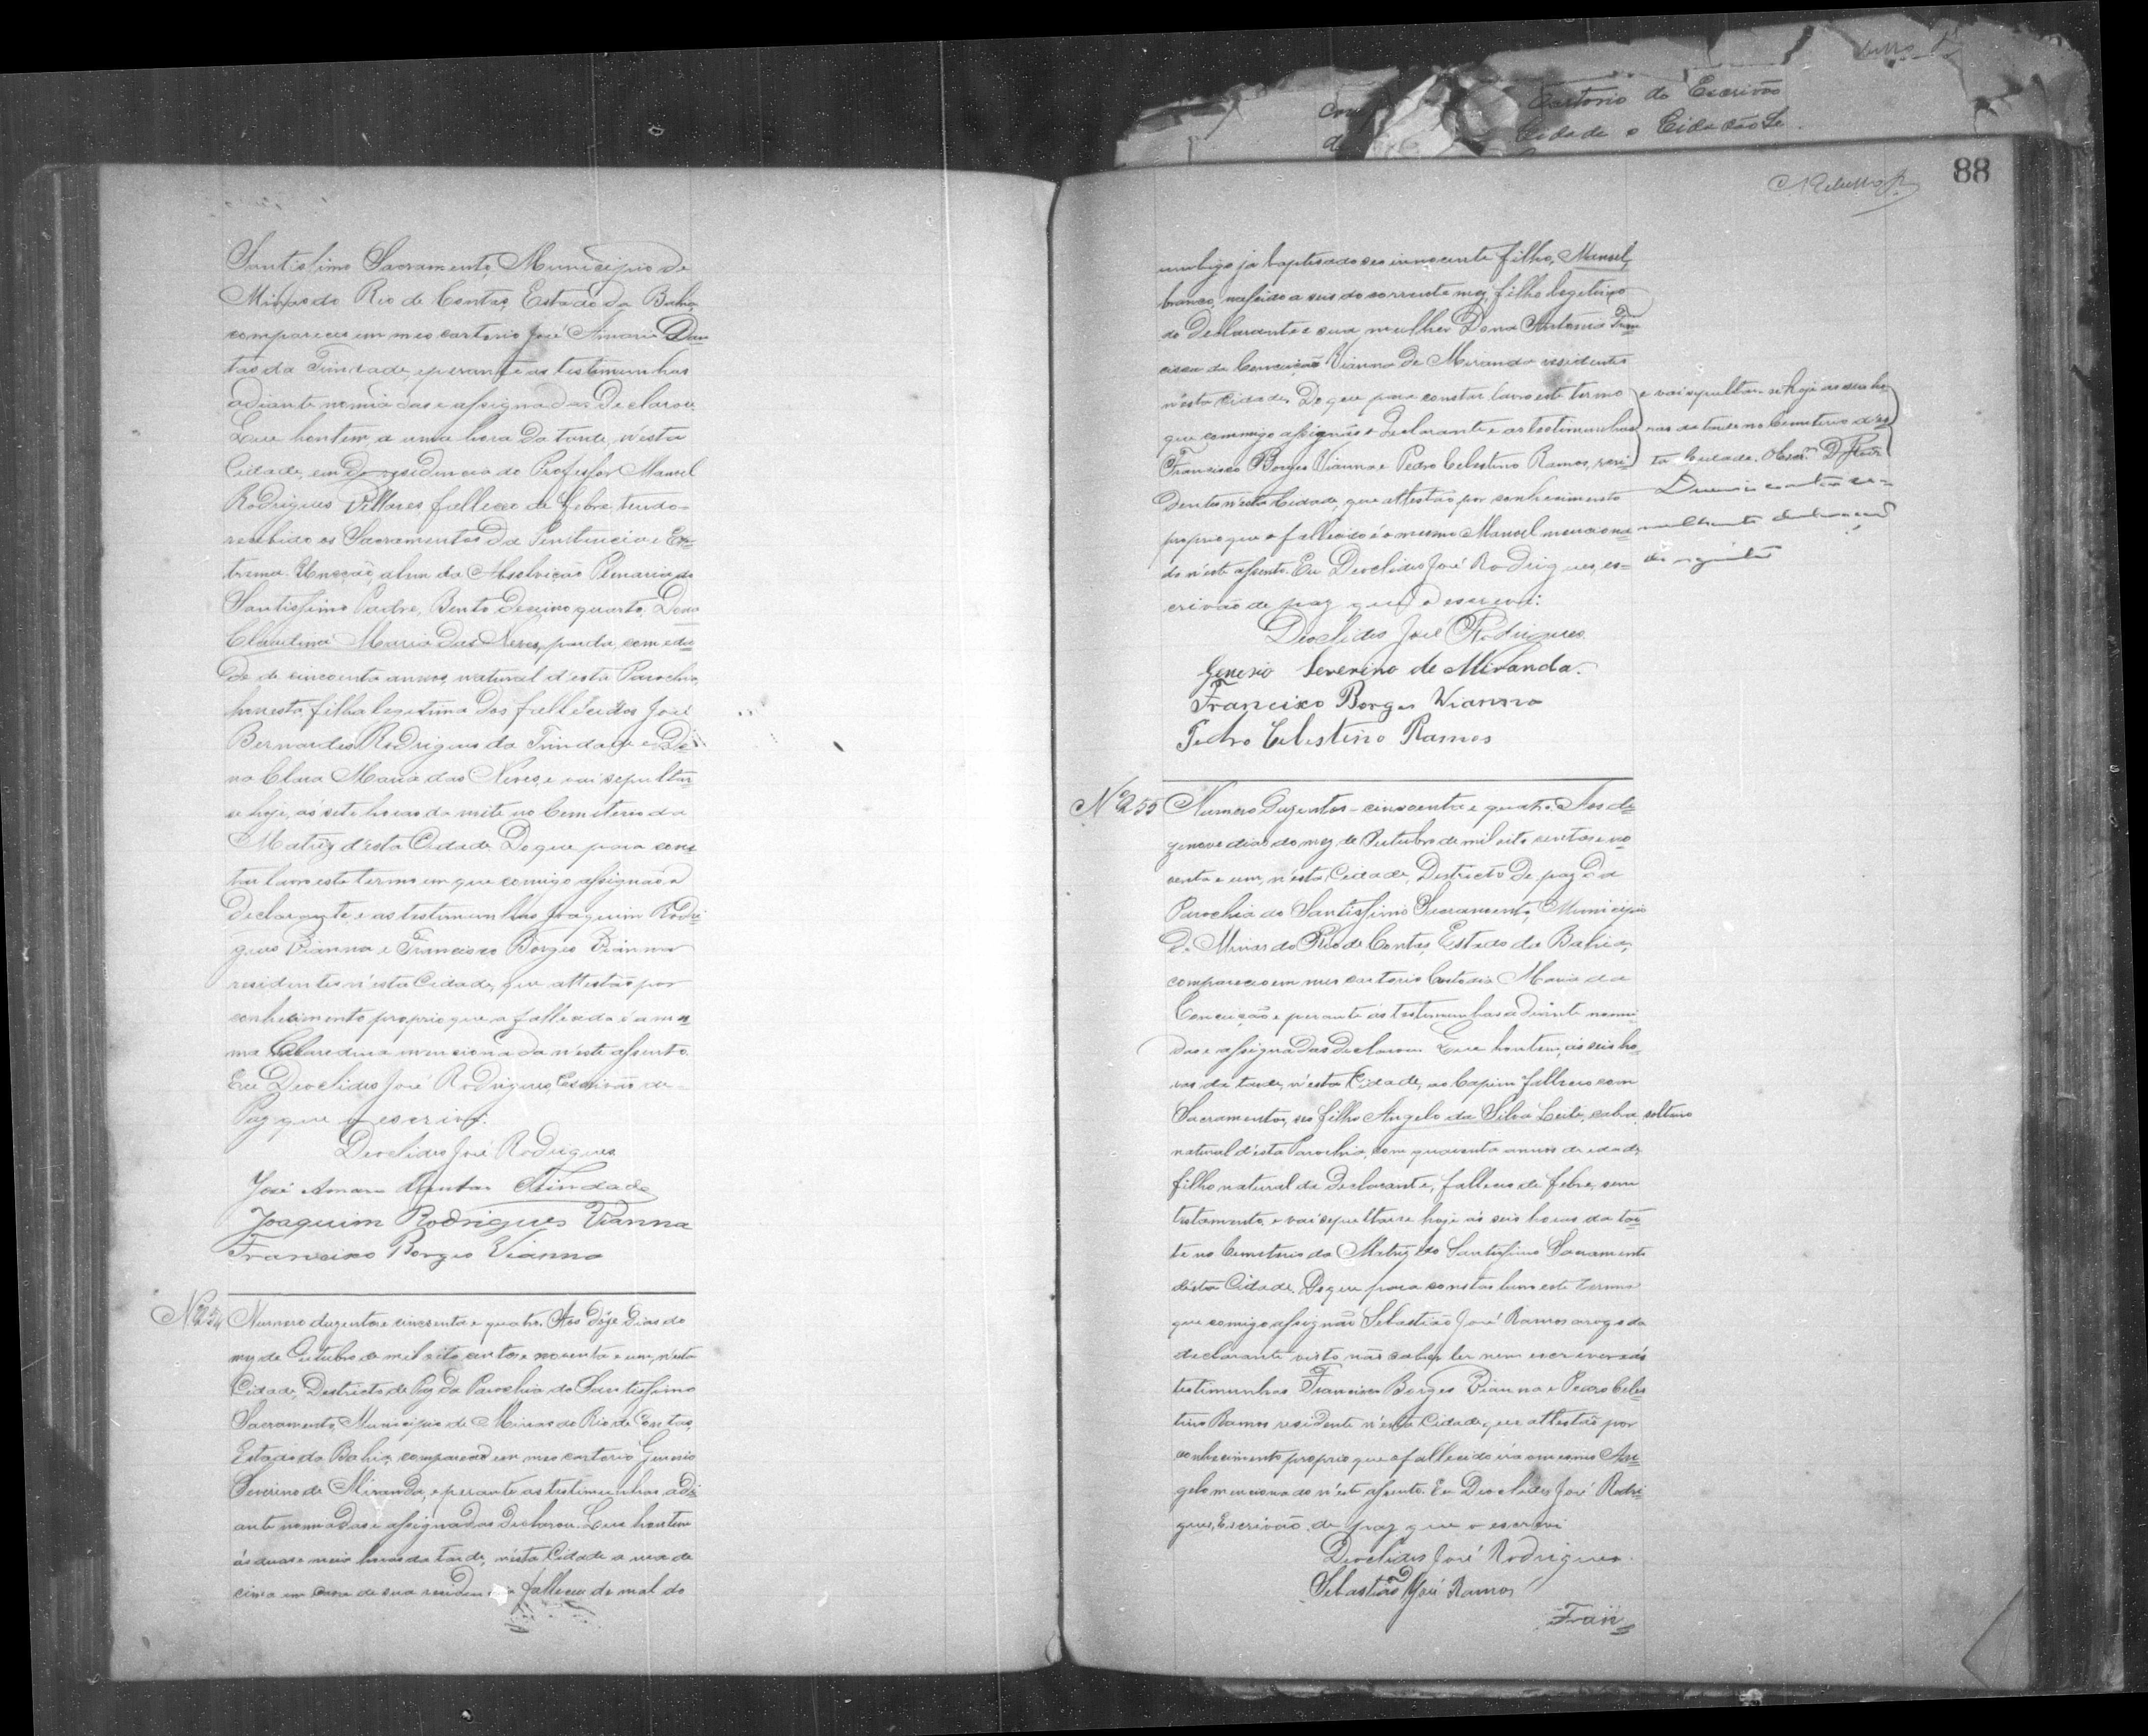 Santissimo Sacramento, Municipio de
Minas do Rio de Contas, Estado da Bahia,
compareceu em meo cartorio José Amaro Dan
tas da Trindade, e perante as testimunhas
adiante nomiadas e assignadas Declarou
Que hontem a uma hora da tarde, n'esta
Cidade, em residencia do Professor Manoel
Rodrigues Villares falleceo de febre, tendo
recebido os Sacramentos da Penitencia e Ex
trema Uncção, alem da Absolvição Plenaria do
Santissimo Padre, Bento Decimo quarto, Dona
Claudina Maria das Neves, parda, com eda
de de cincoenta annos, natural d'esta Parochia,
honesta, filha legitima dos fallecidos José
Bernardes Rodrigues da Trindade e Do
na Clara Maria das Neves, e vai sepultar
se hoje, as sete horas da noite no Cemiterio da
Matriz d'esta Cidade. Do que para cons
tar lavro este termo em que comigo assignão o
Declarante, e as testimunhas Joaquim Rodri
gues Vianna e Francisco Borges Vianna
residentes n'esta Cidade, que attestão por
conhecimento proprio que a fallecida é a mes
ma Claudina mencionada n'este assento.
Eu Deoclides José Rodrigues, Escrivão de
Paz que o escrivi.
Deoclides José Rodrigues
José Amaro Dantas Trindade
Joaquim Rodrigues Vianna
Francisco Borges Vianna
Nº 254
Numero duzentos e cincoenta e quatro. Aos Doze Dias do
mez de Outubro de mil oito centos e noventa e um, n'esta
Cidade, Destricto de Paz da Parochia do Santissimo
Sacramento, Municipio de Minas do Rio de Contas,
Estado da Bahia, compareceo em meo cartorio Genesio
Severino de Miranda, e perante as testimunhas adi
ante nomiadas e assignadas Declarou Que hontem
ás duas e meia horas da tarde, n'esta Cidade a rua de
cima em casa de sua residen falleceu de mal do
88
Cartorio do Escrivão
Cidade o Cidadão
umbigo já baptisado seo innocente filho, Manoel,
branco, nascido a seis do corrente mez, filho legitimo
do Declarante e sua mulher Dona Antonia Fran
cisca da Conceição Vianna de Miranda residentes
n'esta Cidade. Do que para constar lavro este termo
que commigo assignão o Declarante e as testimunhas
Francisco Borges Vianna e Pedro Celestino Ramos, resi
dentes n'esta Cidade, que attestão por conhecimento
proprio que o fallecido é o mesmo Manoel menciona
do n'este assento. Eu Deoclides José Rodrigues, es
crivão de paz que o escrevi.
e vai sepultar-se hoje as seis ho
ras da tarde no Cemiterio d'es
ta Cidade.
Deoclides José Rodrigues
Genesio Severino de Miranda.
Francisco Borges Vianna
Pedro Celestino Ramos
Nº 255
Numero Duzentos cincoenta e quatro. Aos de
zenove dias do mez de Outubro de mil oito centos e no
venta e um, n'esta Cidade, Destricto de paz da
Parochia do Santissimo Sacramento, Municipio
de Minas do Rio de Contas, Estado da Bahia,
compareceo em meo cartorio Custodia Maria da
Conceição e perante as testimunhas adiante nomia
das e assignadas declarou Que hontem, ás seis ho
ras da tarde, n'esta Cidade, ao Capim falleceo com
Sacramentos, seo filho Angelo da Silva Leite, cabra, solteiro
natural d'esta Parochia, com quarenta annos de edade,
filho natural da Declarante, falleceu de febre, sem
testamento, e vai sepultarse hoje ás seis horas da tar
de no Cemiterio da Matriz do Santissimo Sacramento
d'esta Cidade. Do que para constar lavro este termo
que comigo assignão Sebastião José Ramos a rogo da
declarante visto não saber ler nem escrever e ás
testimunhas Francisco Borges Vianna e Pedro Celes
tino Ramos residente n'esta Cidade, que attestão por
conhecimento proprio que o fallecido é o mesmo An
gelo mencionado n'este assento. Eu Deoclides José Rodri
gues, Escrivão de paz que o escrevi
Deoclides José Rodrigues
Sebastião José Ramos
Fran